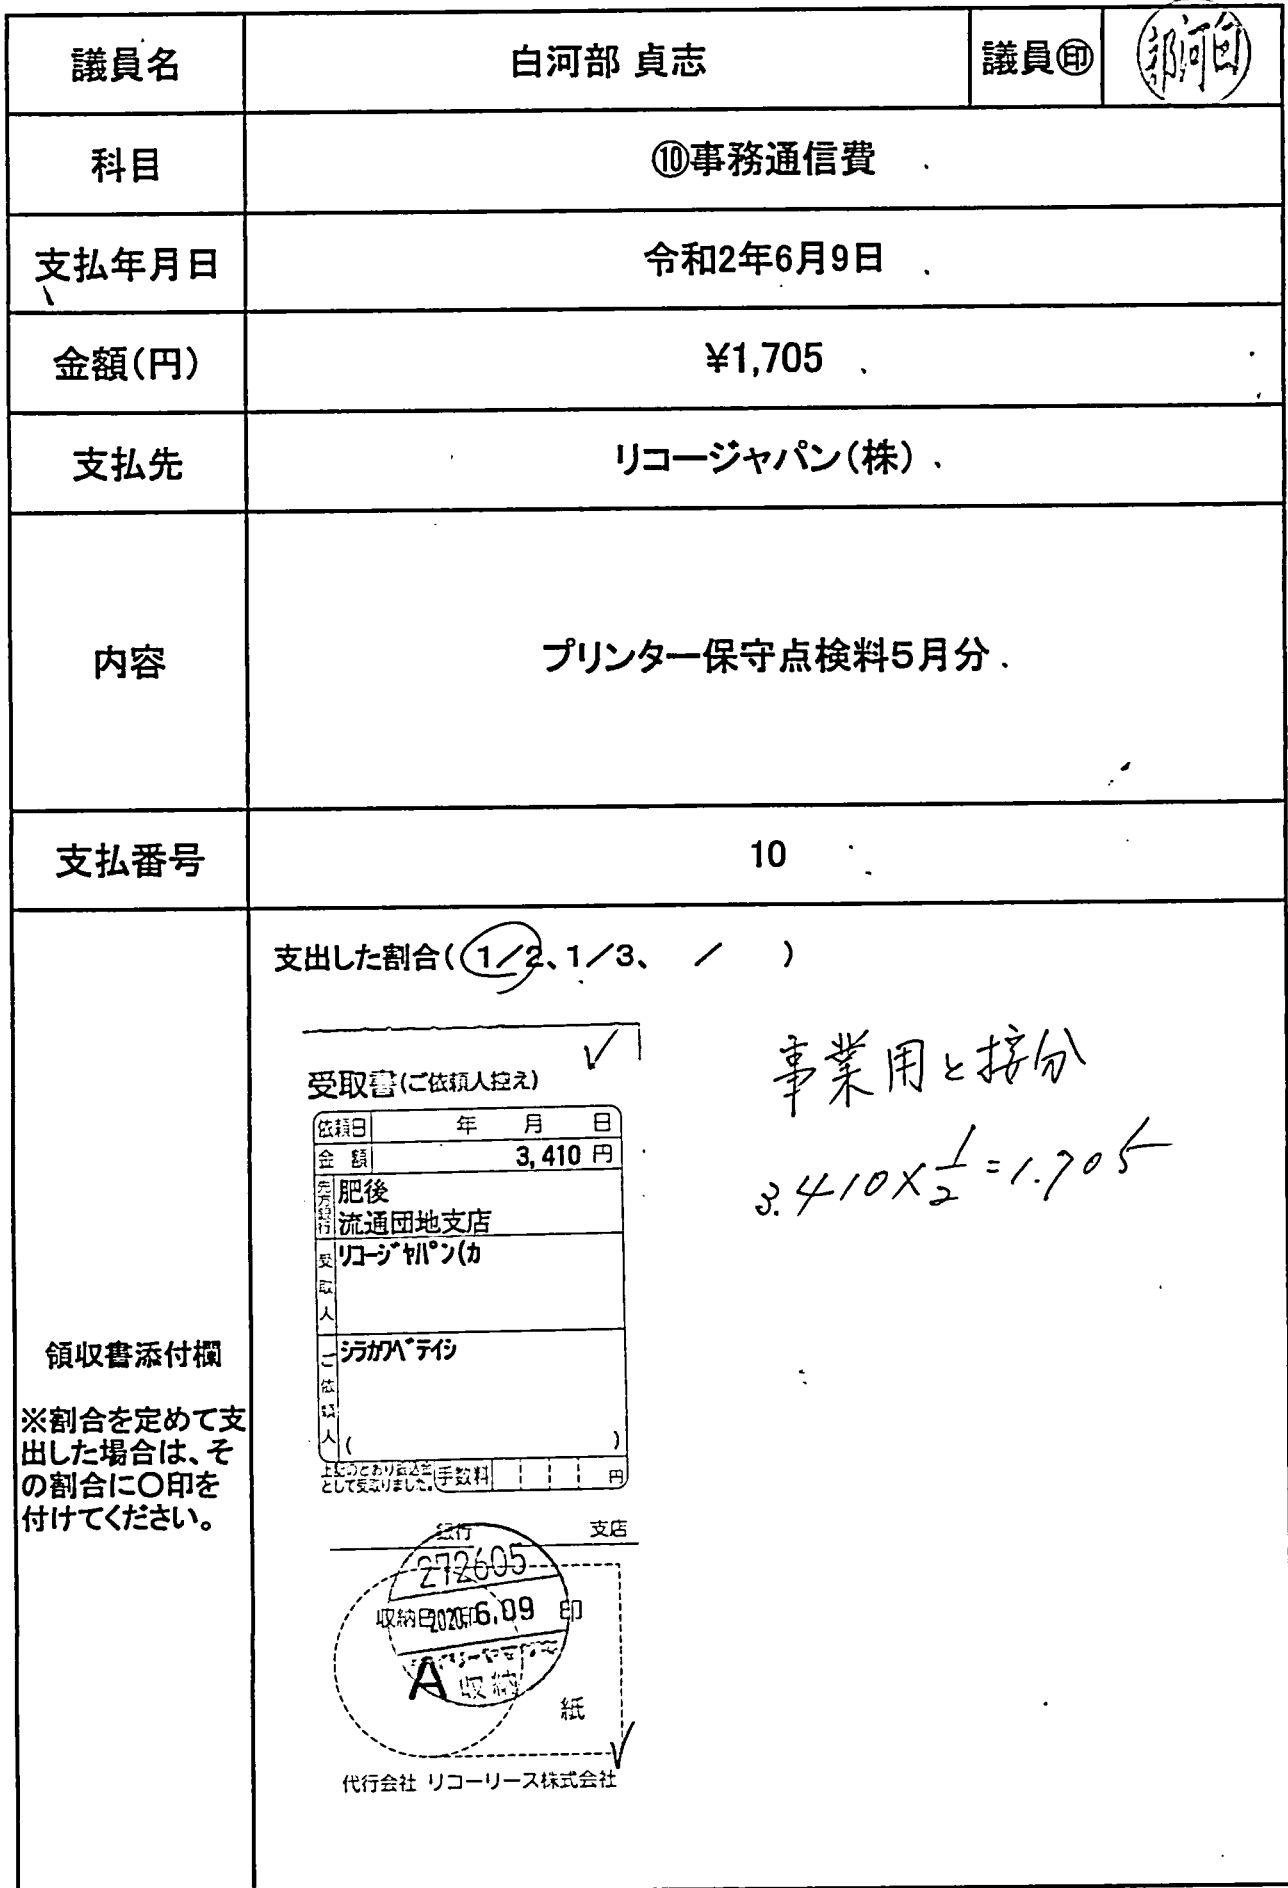 議員名
白河部 貞志
議員㊞
白河部
科目
⑩事務通信費
支払年月日
令和2年6月9日
金額(円)
¥1,705
支払先
リコージャパン(株)
内容
プリンター保守点検料5月分
支払番号
10
領収書添付欄
※割合を定めて支
出した場合は、そ
の割合に〇印を
付けてください。
支出した割合(1/2、1/3、 / )
事業用と按分
3.410×1/2=1.705
受取書(ご依頼人控え)
依頼日 年 月 日
金額 3,410 円
先方銀行 肥後
流通団地支店
受取人 リコージャパン(カ
ご依頼人 シラカワベテイシ
( )
上記のとおり振込金
として受取りました。
手数料 円
銀行 支店
272605
収納日 2020.6.09 印
A 収納
紙
代行会社 リコーリース株式会社